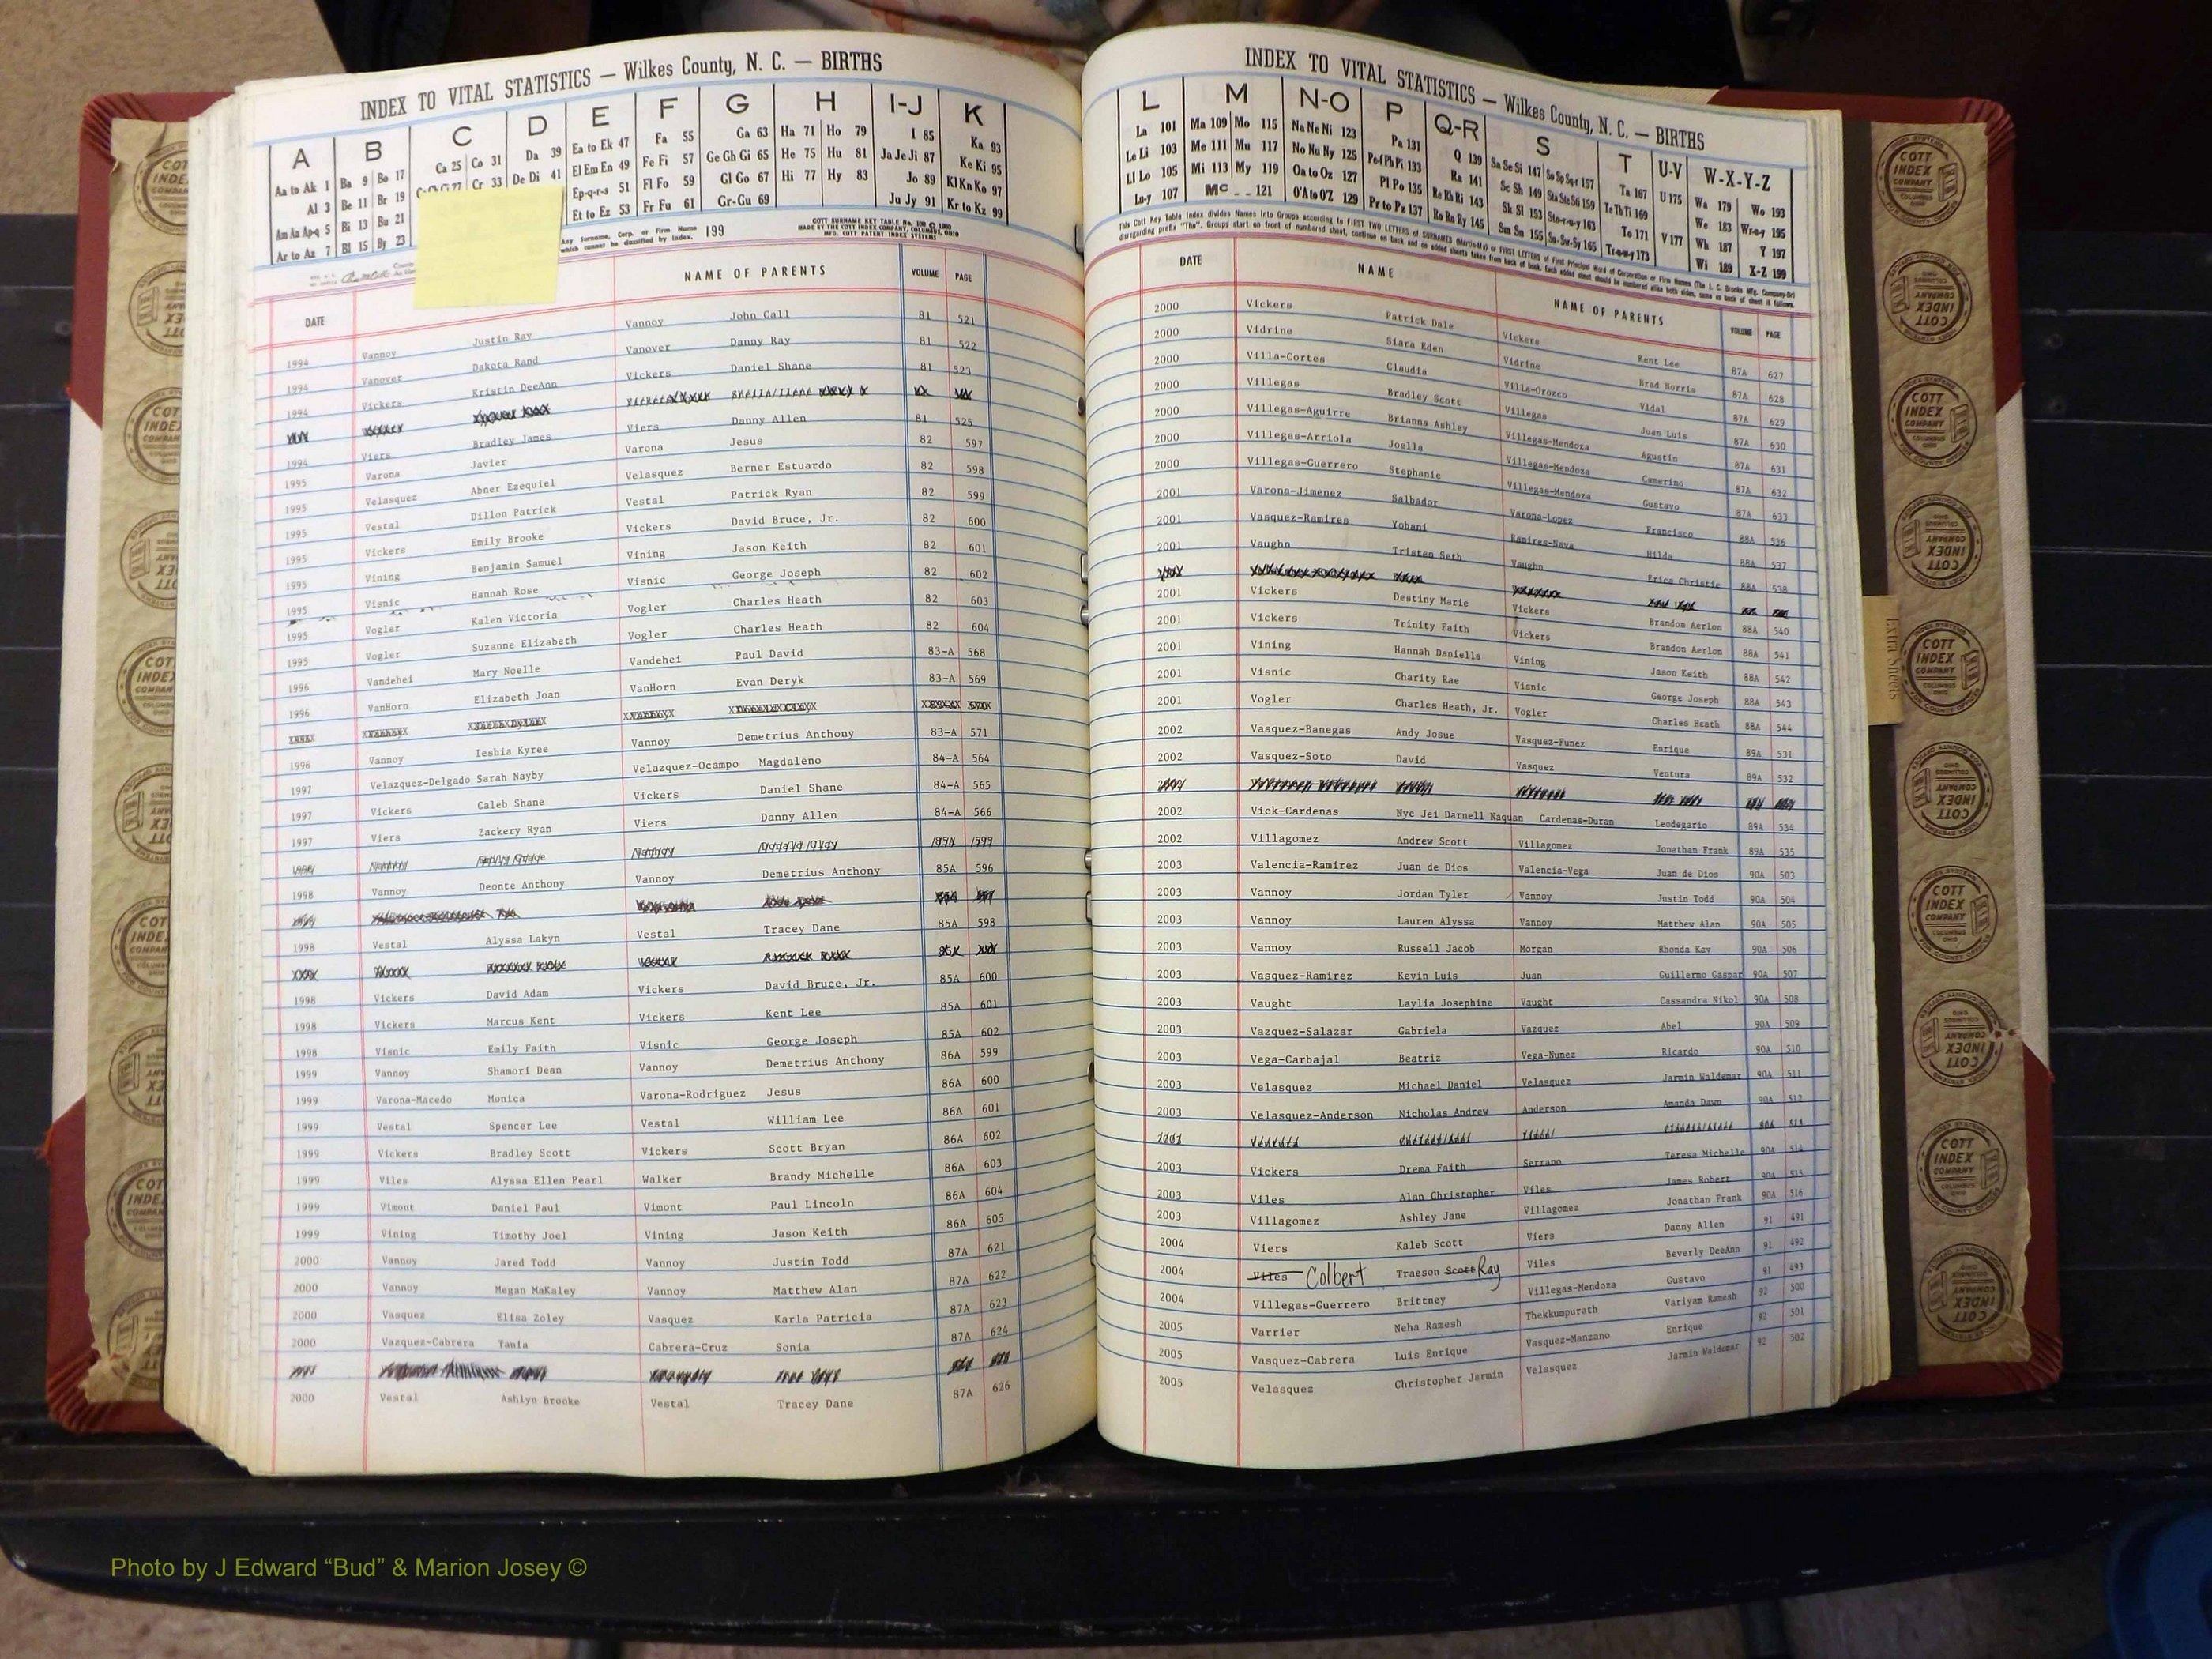 INDEX TO VITAL STATISTICS — Wilkes County, N. C. — BIRTHS
A B C D E F G H I-J K
Aa to Ak 1 Ba 9 Bo 17 Ca 25 Co 31 Da 39 Ea to Ek 47 Fa 55 Ga 63 Ha 71 Ho 79 I 85 Ka 93
Al 3 Be 11 Br 19 Cr 33 De Di 41 El Em En 49 Fe Fi 57 Ge Gh Gi 65 He 75 Hu 81 Ja Je Ji 87 Ke Ki 95
Am An Ap-q 5 Bi 13 Bu 21 Ep-q-r-s 51 Fl Fo 59 Gl Go 67 Hi 77 Hy 83 Jo 89 Kl Kn Ko 97
Ar to Az 7 Bl 15 By 23 Et to Ez 53 Fr Fu 61 Gr-Gu 69 Ju Jy 91 Kr to Kz 99
Any Surname, Corp. or Firm Name which cannot be classified by index. 199
COTT SURNAME KEY TABLE No. 100 © 1980
MADE BY THE COTT INDEX COMPANY, COLUMBUS, OHIO
MFG. COTT PATENT INDEX SYSTEMS
DATE NAME OF PARENTS VOLUME PAGE
1994 Vannoy Justin Ray Vannoy John Call 81 521
1994 Vanover Dakota Rand Vanover Danny Ray 81 522
1994 Vickers Kristin DeeAnn Vickers Daniel Shane 81 523
1994 Viers Bradley James Viers Danny Allen 81 525
1995 Varona Javier Varona Jesus 82 597
1995 Velasquez Abner Ezequiel Velasquez Berner Estuardo 82 598
1995 Vestal Dillon Patrick Vestal Patrick Ryan 82 599
1995 Vickers Emily Brooke Vickers David Bruce, Jr. 82 600
1995 Vining Benjamin Samuel Vining Jason Keith 82 601
1995 Visnic Hannah Rose Visnic George Joseph 82 602
1995 Vogler Kalen Victoria Vogler Charles Heath 82 603
1995 Vogler Suzanne Elizabeth Vogler Charles Heath 82 604
1996 Vandehei Mary Noelle Vandehei Paul David 83-A 568
1996 VanHorn Elizabeth Joan VanHorn Evan Deryk 83-A 569
1996 Vannoy Ieshia Kyree Vannoy Demetrius Anthony 83-A 571
1997 Velazquez-Delgado Sarah Nayby Velazquez-Ocampo Magdaleno 84-A 564
1997 Vickers Caleb Shane Vickers Daniel Shane 84-A 565
1997 Viers Zackery Ryan Viers Danny Allen 84-A 566
1998 Vannoy Deonte Anthony Vannoy Demetrius Anthony 85A 596
1998 Vestal Alyssa Lakyn Vestal Tracey Dane 85A 598
1998 Vickers David Adam Vickers David Bruce, Jr. 85A 600
1998 Vickers Marcus Kent Vickers Kent Lee 85A 601
1998 Visnic Emily Faith Visnic George Joseph 85A 602
1999 Vannoy Shamori Dean Vannoy Demetrius Anthony 86A 599
1999 Varona-Macedo Monica Varona-Rodriguez Jesus 86A 600
1999 Vestal Spencer Lee Vestal William Lee 86A 601
1999 Vickers Bradley Scott Vickers Scott Bryan 86A 602
1999 Viles Alyssa Ellen Pearl Walker Brandy Michelle 86A 603
1999 Vimont Daniel Paul Vimont Paul Lincoln 86A 604
1999 Vining Timothy Joel Vining Jason Keith 86A 605
2000 Vannoy Jared Todd Vannoy Justin Todd 87A 621
2000 Vannoy Megan MaKaley Vannoy Matthew Alan 87A 622
2000 Vasquez Elisa Zoley Vasquez Karla Patricia 87A 623
2000 Vazquez-Cabrera Tania Cabrera-Cruz Sonia 87A 624
2000 Vestal Ashlyn Brooke Vestal Tracey Dane 87A 626
INDEX TO VITAL STATISTICS — Wilkes County, N. C. — BIRTHS
L M N-O P Q-R S T U-V W-X-Y-Z
La 101 Ma 109 Mo 115 Na Ne Ni 123 Pa 131 Q 139 Sa Se Si 147 So Sp Sq-r 157 Ta 167 U 175 Wa 179 Wo 193
Le Li 103 Me 111 Mu 117 No Nu Ny 125 Pe-f Ph Pi 133 Ra 141 Sc Sh 149 Sta Ste Sti 159 Te Th Ti 169 We 183 Wr-o-y 195
Ll Lo 105 Mi 113 My 119 On to Oz 127 Pl Po 135 Re Rh Ri 143 Sk Sl 153 Sto-r-u-y 163 To 171 V 177 Wh 187 Y 197
Lu-y 107 Mc 121 O'A to O'Z 129 Pr to Pz 137 Ro Ru Ry 145 Sm Sn 155 Su-Sw-Sy 165 Tr-u-w-y 173 Wi 189 X-Z 199
DATE NAME NAME OF PARENTS VOLUME PAGE
2000 Vickers Patrick Dale Vickers Kent Lee 87A 627
2000 Vidrine Siara Eden Vidrine Brad Norris 87A 628
2000 Villa-Cortes Claudia Villa-Orozco Vidal 87A 629
2000 Villegas Bradley Scott Villegas Juan Luis 87A 630
2000 Villegas-Aguirre Brianna Ashley Villegas-Mendoza Agustin 87A 631
2000 Villegas-Arriola Joella Villegas-Mendoza Camerino 87A 632
2000 Villegas-Guerrero Stephanie Villegas-Mendoza Gustavo 87A 633
2001 Varona-Jimenez Salbador Varona-Lopez Francisco 88A 536
2001 Vasquez-Ramires Yobani Ramires-Nava Hilda 88A 537
2001 Vaughn Tristen Seth Vaughn Erica Christie 88A 538
2001 Vickers Destiny Marie Vickers Brandon Aerlon 88A 540
2001 Vickers Trinity Faith Vickers Brandon Aerlon 88A 541
2001 Vining Hannah Daniella Vining Jason Keith 88A 542
2001 Visnic Charity Rae Visnic George Joseph 88A 543
2001 Vogler Charles Heath, Jr. Vogler Charles Heath 88A 544
2002 Vasquez-Banegas Andy Josue Vasquez-Funez Enrique 89A 531
2002 Vasquez-Soto David Vasquez Ventura 89A 532
2002 Vick-Cardenas Nye Jei Darnell Naquan Cardenas-Duran Leodegario 89A 534
2002 Villagomez Andrew Scott Villagomez Jonathan Frank 89A 535
2003 Valencia-Ramirez Juan de Dios Valencia-Vega Juan de Dios 90A 503
2003 Vannoy Jordan Tyler Vannoy Justin Todd 90A 504
2003 Vannoy Lauren Alyssa Vannoy Matthew Alan 90A 505
2003 Vannoy Russell Jacob Morgan Rhonda Kay 90A 506
2003 Vasquez-Ramirez Kevin Luis Juan Guillermo Gaspar 90A 507
2003 Vaught Laylia Josephine Vaught Cassandra Nikol 90A 508
2003 Vazquez-Salazar Gabriela Vazquez Abel 90A 509
2003 Vega-Carbajal Beatriz Vega-Nunez Ricardo 90A 510
2003 Velasquez Michael Daniel Velasquez Jarmin Waldemar 90A 511
2003 Velasquez-Anderson Nicholas Andrew Anderson Amanda Dawn 90A 512
2003 Vickers Drema Faith Serrano Teresa Michelle 90A 514
2003 Viles Alan Christopher Viles James Robert 90A 515
2003 Villagomez Ashley Jane Villagomez Jonathan Frank 90A 516
2004 Viers Kaleb Scott Viers Danny Allen 91 491
2004 Viles Colbert Traeson Scott Ray Viles Beverly DeeAnn 91 492
2004 Villegas-Guerrero Brittney Villegas-Mendoza Gustavo 91 493
2005 Varrier Neha Ramesh Thekkumpurath Variyam Ramesh 92 500
2005 Vasquez-Cabrera Luis Enrique Vasquez-Manzano Enrique 92 501
2005 Velasquez Christopher Jarmin Velasquez Jarmin Waldemar 92 502
Extra Sheets
COTT INDEX COMPANY COLUMBUS OHIO
Photo by J Edward “Bud” & Marion Josey ©